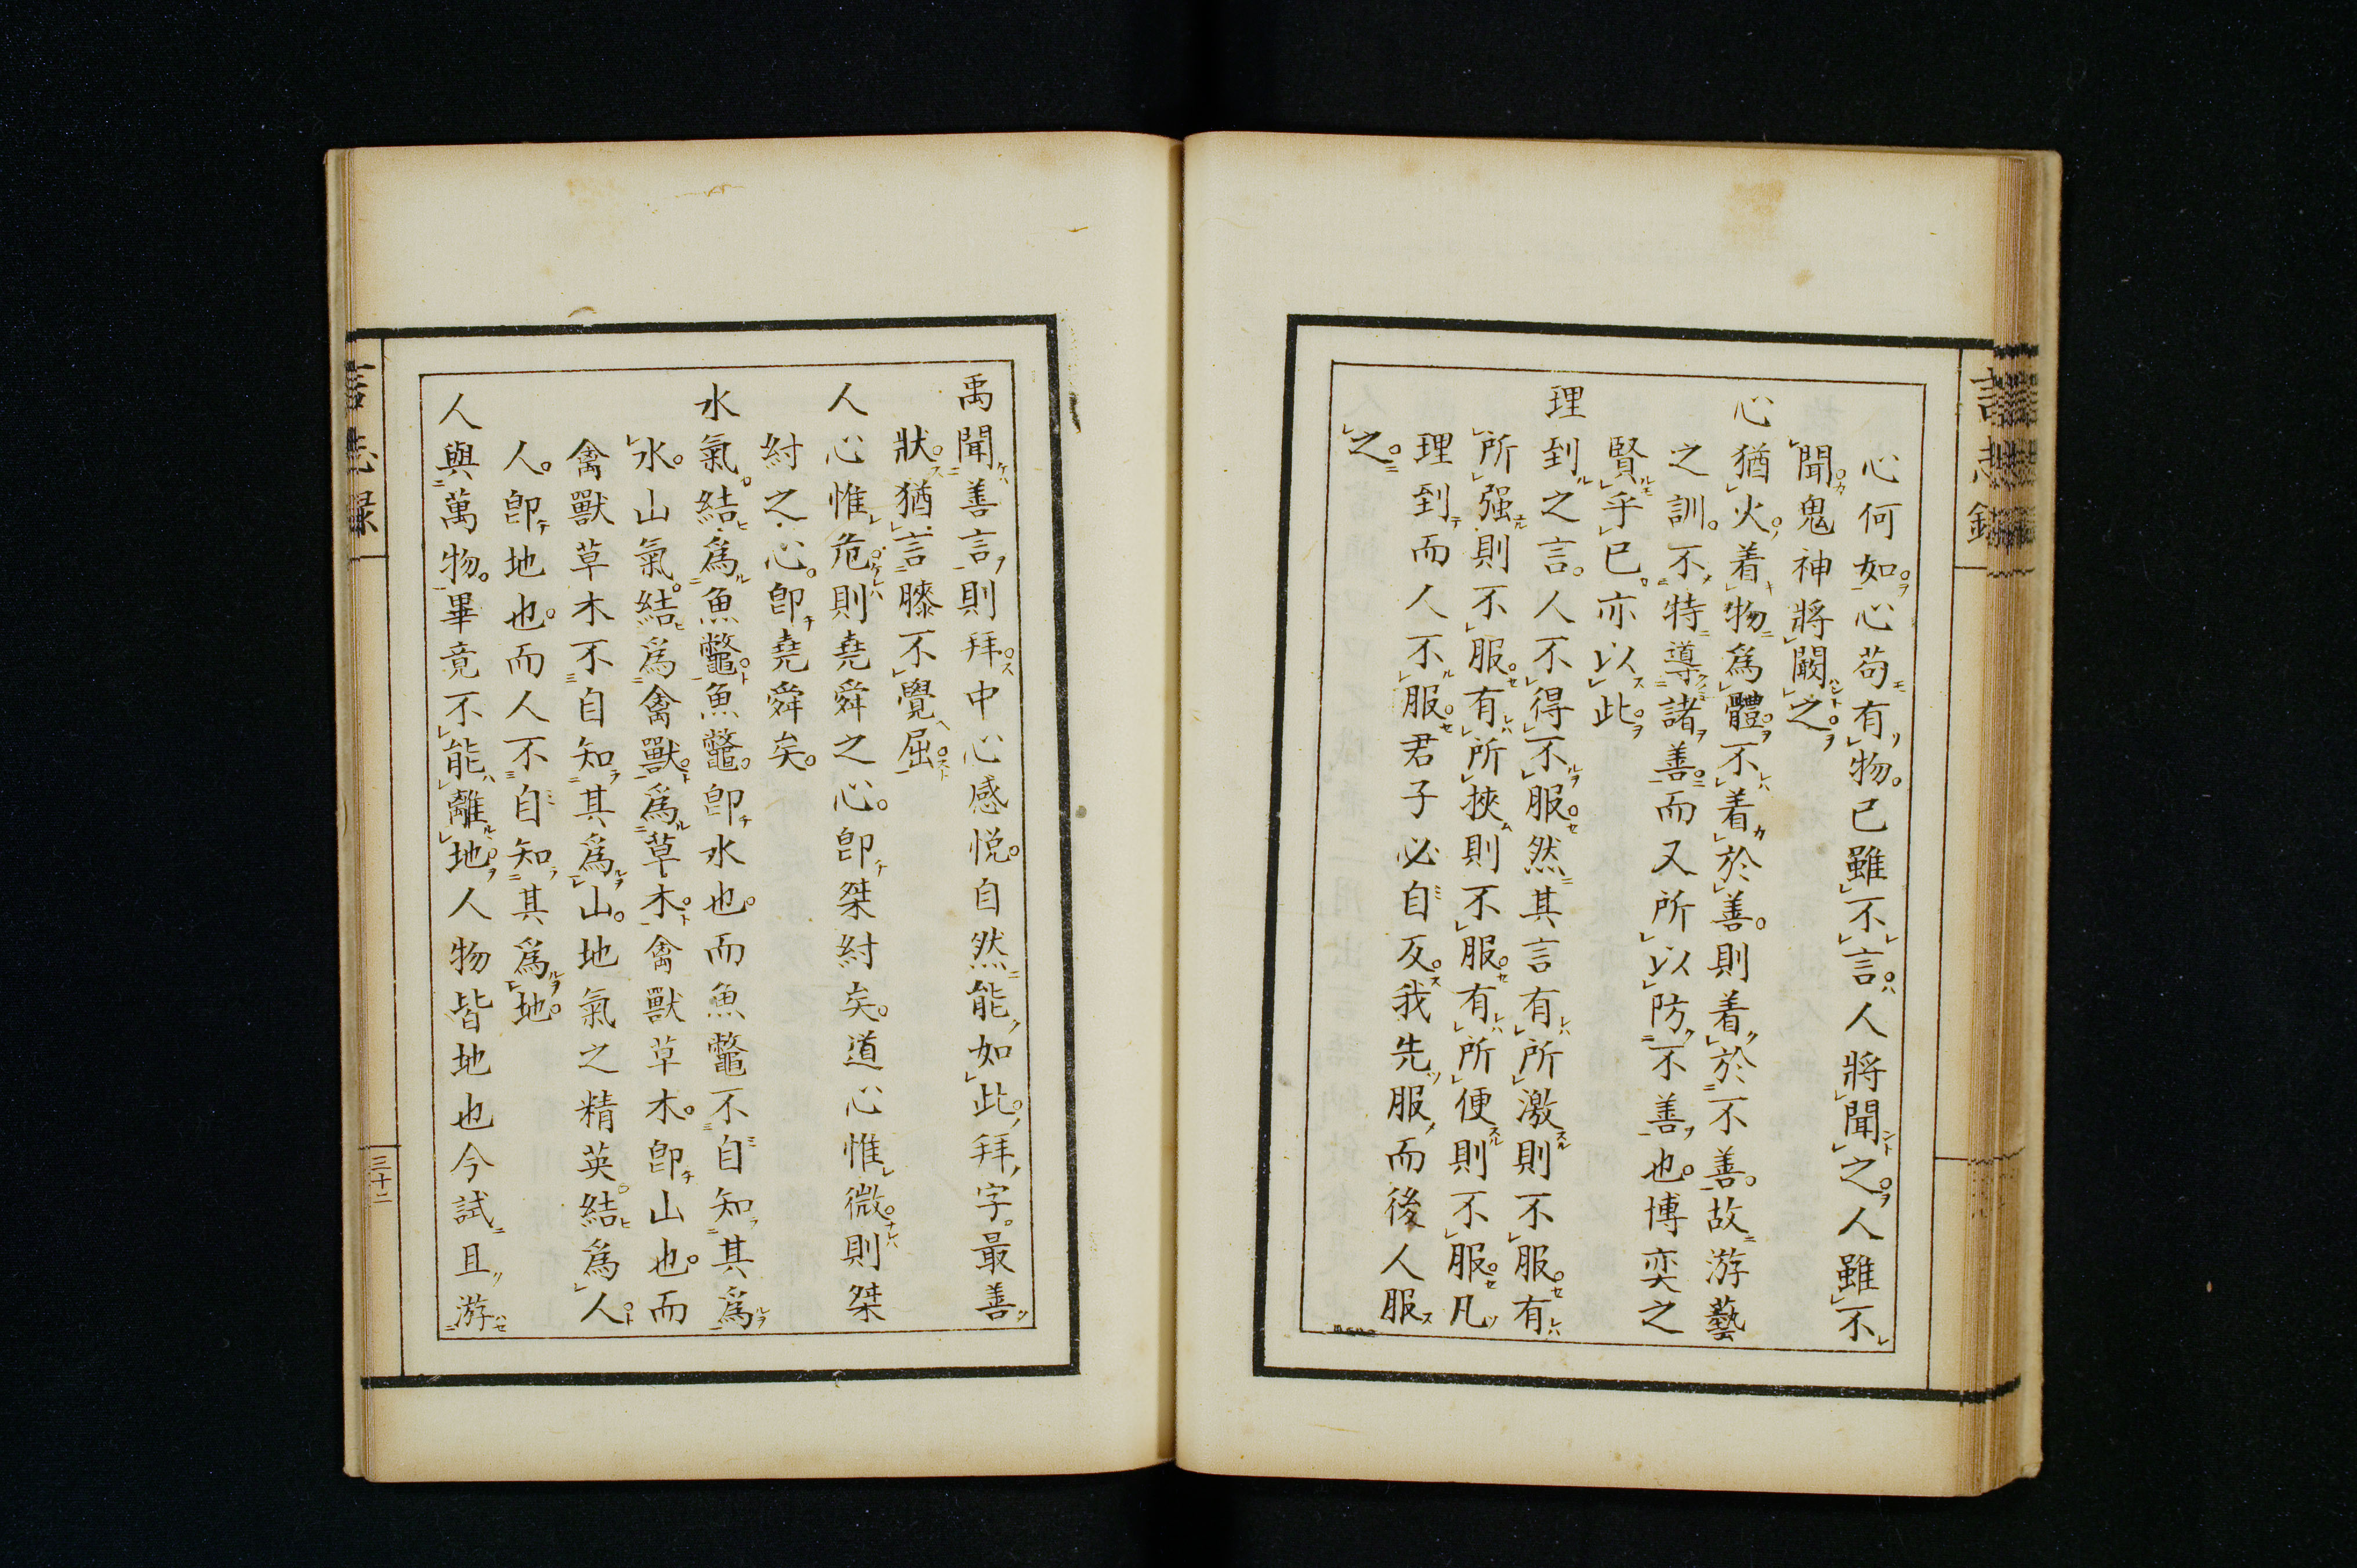 言志錄
心何如心苟有物已雖不言人將聞之人雖不
聞鬼神將闞之
心猶火着物爲體不着於善則着於不善故游藝
之訓不特導諸善而又所以防不善也博奕之
賢乎已亦以此
理到之言人不得不服然其言有所激則不服有
所强則不服有所挾則不服有所便則不服凡
理到而人不服君子必自反我先服而後人服
之
禹聞善言則拜中心感悦自然能如此拜字最善
狀猶言膝不覺屈
人心惟危則堯舜之心卽桀紂矣道心惟微則桀
紂之心卽堯舜矣
水氣結爲魚鼈魚鼈卽水也而魚鼈不自知其爲
水山氣結爲禽獸爲草木禽獸草木卽山也而
禽獸草木不自知其爲山地氣之精英結爲人
人卽地也而人不自知其爲地
人與萬物畢竟不能離地人物皆地也今試且游
言志録
三十二